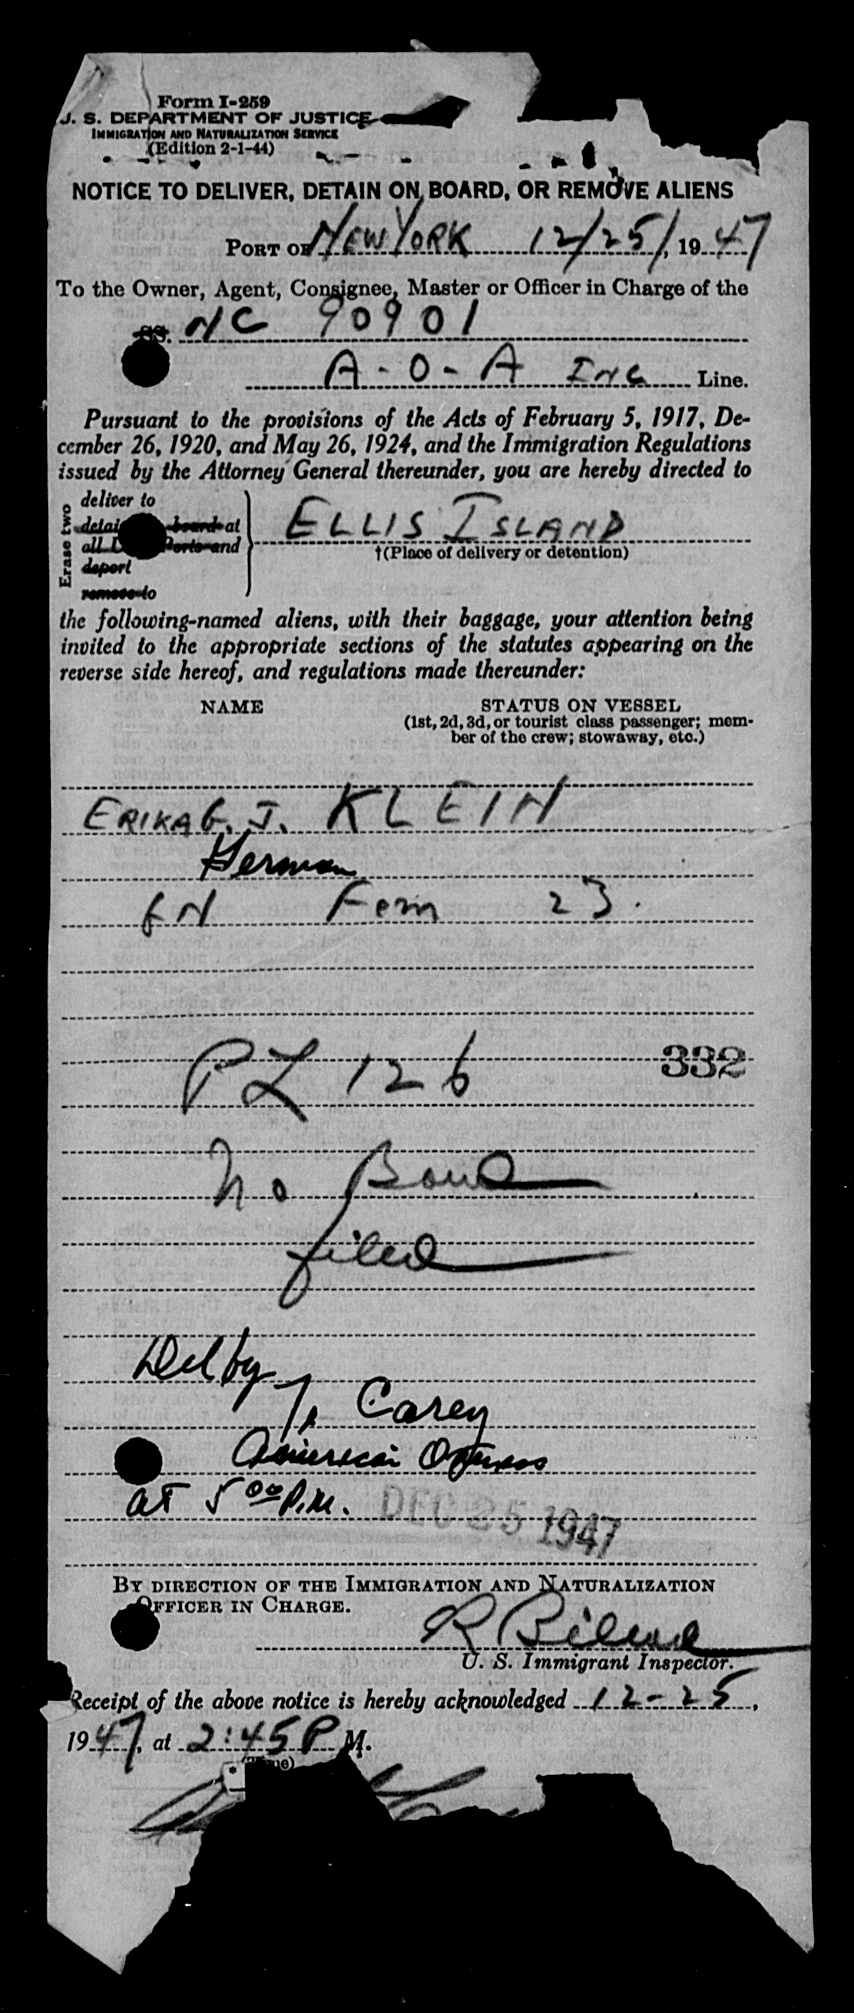 Form I-259
U. S. DEPARTMENT OF JUSTICE
IMMIGRATION AND NATURALIZATION SERVICE
(Edition 2-1-44)
NOTICE TO DELIVER, DETAIN ON BOARD, OR REMOVE ALIENS
PORT OF NEW YORK 12/25/, 1947
To the Owner, Agent, Consignee, Master or Officer in Charge of the
SS. NC 90901
A-O-A INC Line.
Pursuant to the provisions of the Acts of February 5, 1917, De-
cember 26, 1920, and May 26, 1924, and the Immigration Regulations
issued by the Attorney General thereunder, you are hereby directed to
Erase two
deliver to
board at
all Ports and
deport
remove to
ELLIS ISLAND
†(Place of delivery or detention)
the following-named aliens, with their baggage, your attention being
invited to the appropriate sections of the statutes appearing on the
reverse side hereof, and regulations made thereunder:
NAME STATUS ON VESSEL
(1st, 2d, 3d, or tourist class passenger; mem-
ber of the crew; stowaway, etc.)
ERIKA G. J. KLEIN
German
Fem 23.
PL 126 332
No Bond
filed
Del by
Carey
American
at 5 00 P.M. DEC 25 1947
BY DIRECTION OF THE IMMIGRATION AND NATURALIZATION
OFFICER IN CHARGE.
R
U. S. Immigrant Inspector.
Receipt of the above notice is hereby acknowledged 12-25,
1947, at 2:45 P M.